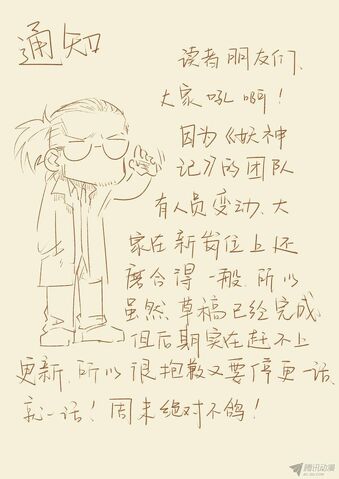 通知
读者朋友们、
大家吼啊!
因为《妖神
记》的团队
有人员变动、大
家在新岗位上还
磨合得一般、所以
虽然草稿已经完成、
但后期实在赶不上
更新、所以很抱歉又要停更一话、
就一话!周末绝对不鸽!
腾讯动漫